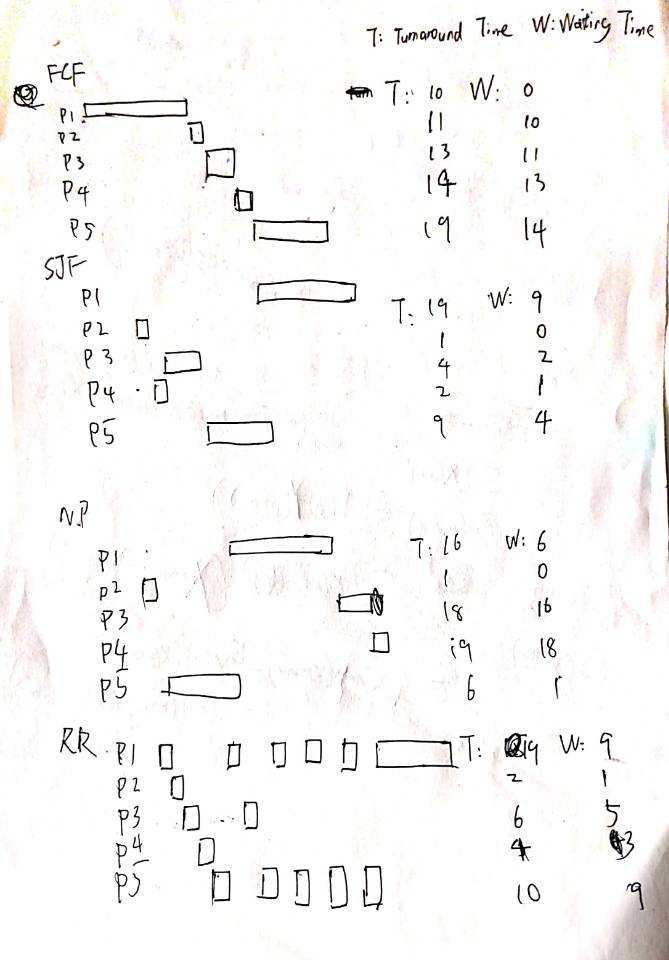 T: Turnaround Time W: Waiting Time
FCF
P1 T: 10 W: 0
P2 11 10
P3 13 11
P4 14 13
P5 19 14
SJF
P1 T: 19 W: 9
P2 1 0
P3 4 2
P4 2 1
P5 9 4
NP
P1 T: 16 W: 6
P2 1 0
P3 18 16
P4 19 18
P5 6 1
RR P1 T: 19 W: 9
P2 2 1
P3 6 5
P4 4 3
P5 10 9